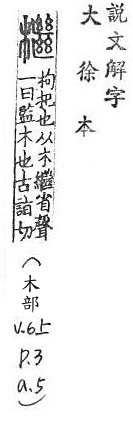 說文解字
大徐本
檵
枸杞也从木繼省聲
一曰監木也古詣切
(木部 v.6上 p.3 a.5)